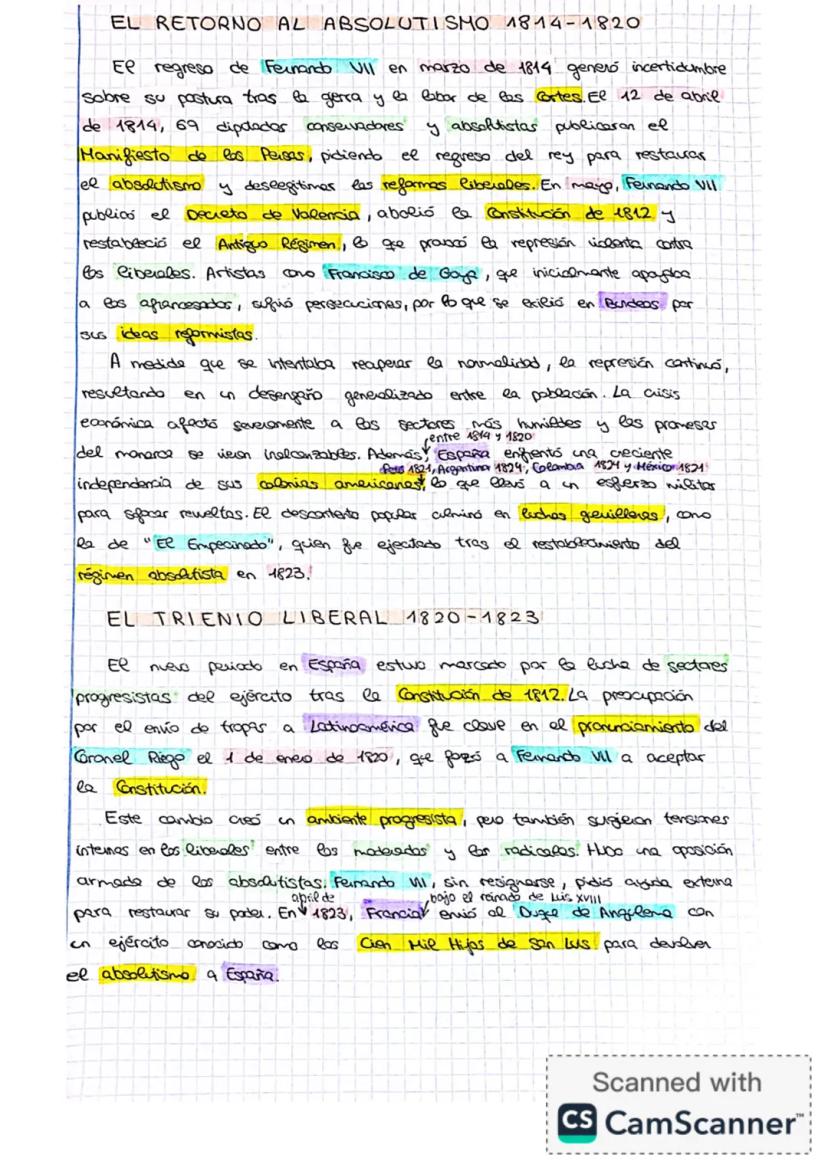 EL RETORNO AL ABSOLUTISMO 1814-1820
El regreso de Fernando VII en marzo de 1814 generó incertidumbre
sobre su postura tras la gerra y la labor de las Cortes. El 12 de abril
de 1814, 69 diputados conservadores y absolutistas publicaron el
Manifiesto de los Persas, pidiendo el regreso del rey para restaurar
el absolutismo y deslegitimar las reformas liberales. En mayo, Fernando VII
publicó el Decreto de Valencia, abolió la Constitución de 1812 y
restableció el Antiguo Régimen, lo que provocó la represión violenta contra
los liberales. Artistas como Francisco de Goya, que inicialmente apoyaba
a los afrancesados, sufrió persecuciones, por lo que se exilió en Burdeos por
sus ideas reformistas.
A medida que se intentaba recuperar la normalidad, la represión continuó,
resultando en un desengaño generalizado entre la población. La crisis
económica afectó severamente a los sectores más humildes y las promesas
entre 1814 y 1820
del monarca se vieron inalcanzables. Además, España enfrentó una creciente
Perú 1821, Argentina 1824, Colombia 1824 y México 1821
independencia de sus colonias americanas, lo que llevó a un esfuerzo militar
para sofocar revueltas. El descontento popular culminó en luchas guerrilleras, como
la de "El Empecinado", quien fue ejecutado tras el restablecimiento del
régimen absolutista en 1823.
EL TRIENIO LIBERAL 1820-1823
El nuevo periodo en España estuvo marcado por la lucha de sectores
progresistas del ejército tras la Constitución de 1812. La preocupación
por el envío de tropas a Latinoamérica fue clave en el pronunciamiento del
Coronel Riego el 1 de enero de 1820, que forzó a Fernando VII a aceptar
la Constitución.
Este cambio creó un ambiente progresista, pero también surgieron tensiones
internas en los liberales entre los moderados y los radicales. Hubo una oposición
armada de los absolutistas. Fernando VII, sin resignarse, pidió ayuda externa
abril de bajo el reinado de Luis XVIII
para restaurar su poder. En 1823, Francia envió al Duque de Angulema con
un ejército conocido como los Cien Mil Hijos de San Luis para devolver
el absolutismo a España.
Scanned with
CS CamScanner™